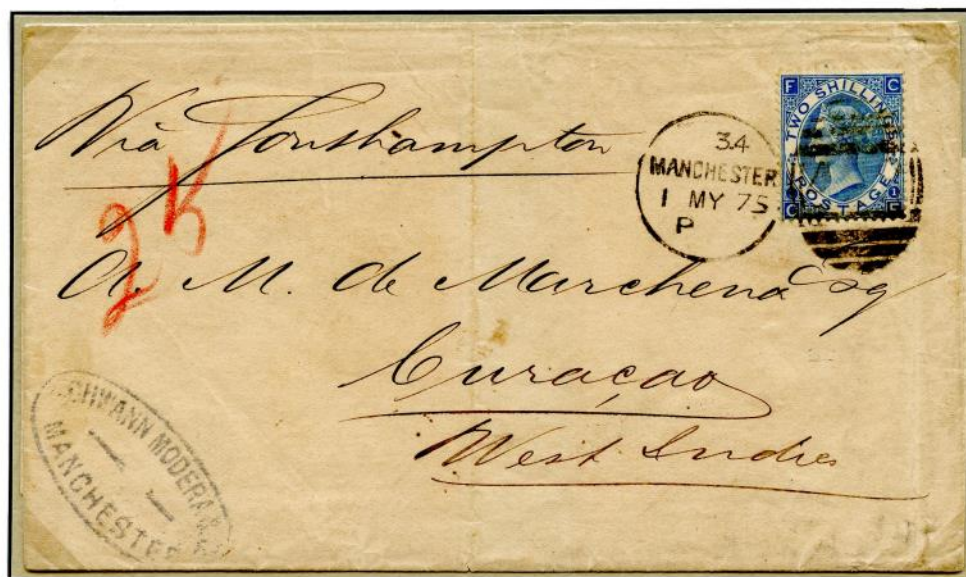 Via Southampton
2/-
34
MANCHESTER
1 MY 75
P
F C
TWO SHILLINGS
POSTAGE
1
C F
A. M. de Marchena Esq
Curaçao
West Indies
SCHWANN MODERA &
MANCHESTER